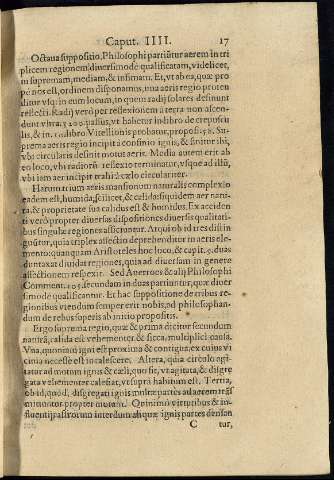 Caput. IIII. 17
Octaua suppositio, Philosophi partiũtur aerem in tri
plicem regionem diuersimodè qualificatam, videlicet,
in supremam, mediam, & infimam. Et, vt ab ea, quæ pro
pè nos est, ordinem disponamus, ima aeris regio proten
ditur vsq; in eum locum, in quem radij solares desinunt
reflecti. Radij verò per reflexionem à terra non ascen
dunt vltra passus, vt habetur in libro de crepuscu
lis, & in 10. libro Vitellionis probatur, propos. Su
prema aeris regio incipit à confinio ignis, & finitur ibi,
vbi circularis desinit motus aeris. Media autem erit ab
eo loco, vbi radiorũ reflexio terminatur, vsque ad illũ,
vbi iam aer incipit trahi à cælo circulariter.
Harum trium aeris mansionum naturalis complexio
eadem est, humida, scilicet, & calida: siquidem aer natu
ra, & proprietate sua calidus est & humidus. Ex acciden
ti verò propter diuersas dispositiones diuersis qualitati-
bus singulæ regiones afficiuntur. Atqui ob id tres distin
guũtur, quia triplex affectio deprehenditur in aeris ele-
mento: quamquam Aristoteles hoc loco, & capit. 3. duas
duntaxat diuidat regiones, quia ad diuersam in genere
affectionem respexit. Sed Auerroes & alij Philosophi
Comment. secundam in duas partiuntur, quæ diuer
simodè qualificantur. Et hac suppositione de tribus re-
gionibus viendum semper erit nobis, ad philosophan-
dum de rebus superis ab initio propositis.
Ergo suprema regio, quæ & prima dicitur secundum
naturã, calida est vehementer & sicca, multiplici causa.
Vna, quoniam igni est proxima & contigua, ex cuius vi
cinia necesse est incalescere. Altera, quia circulo agi-
tatur ad motum ignis & cæli, quo fit, vt agitata, & disgre
gata vehementer calefiat, vt supra habitum est. Tertia,
ob id, quòd, disgregati ignis multæ partes ad aerem
propter mutant. Quinimò virtutibus & in-
fluentijs astrorum interdum aliquæ ignis partes densan
C tur,